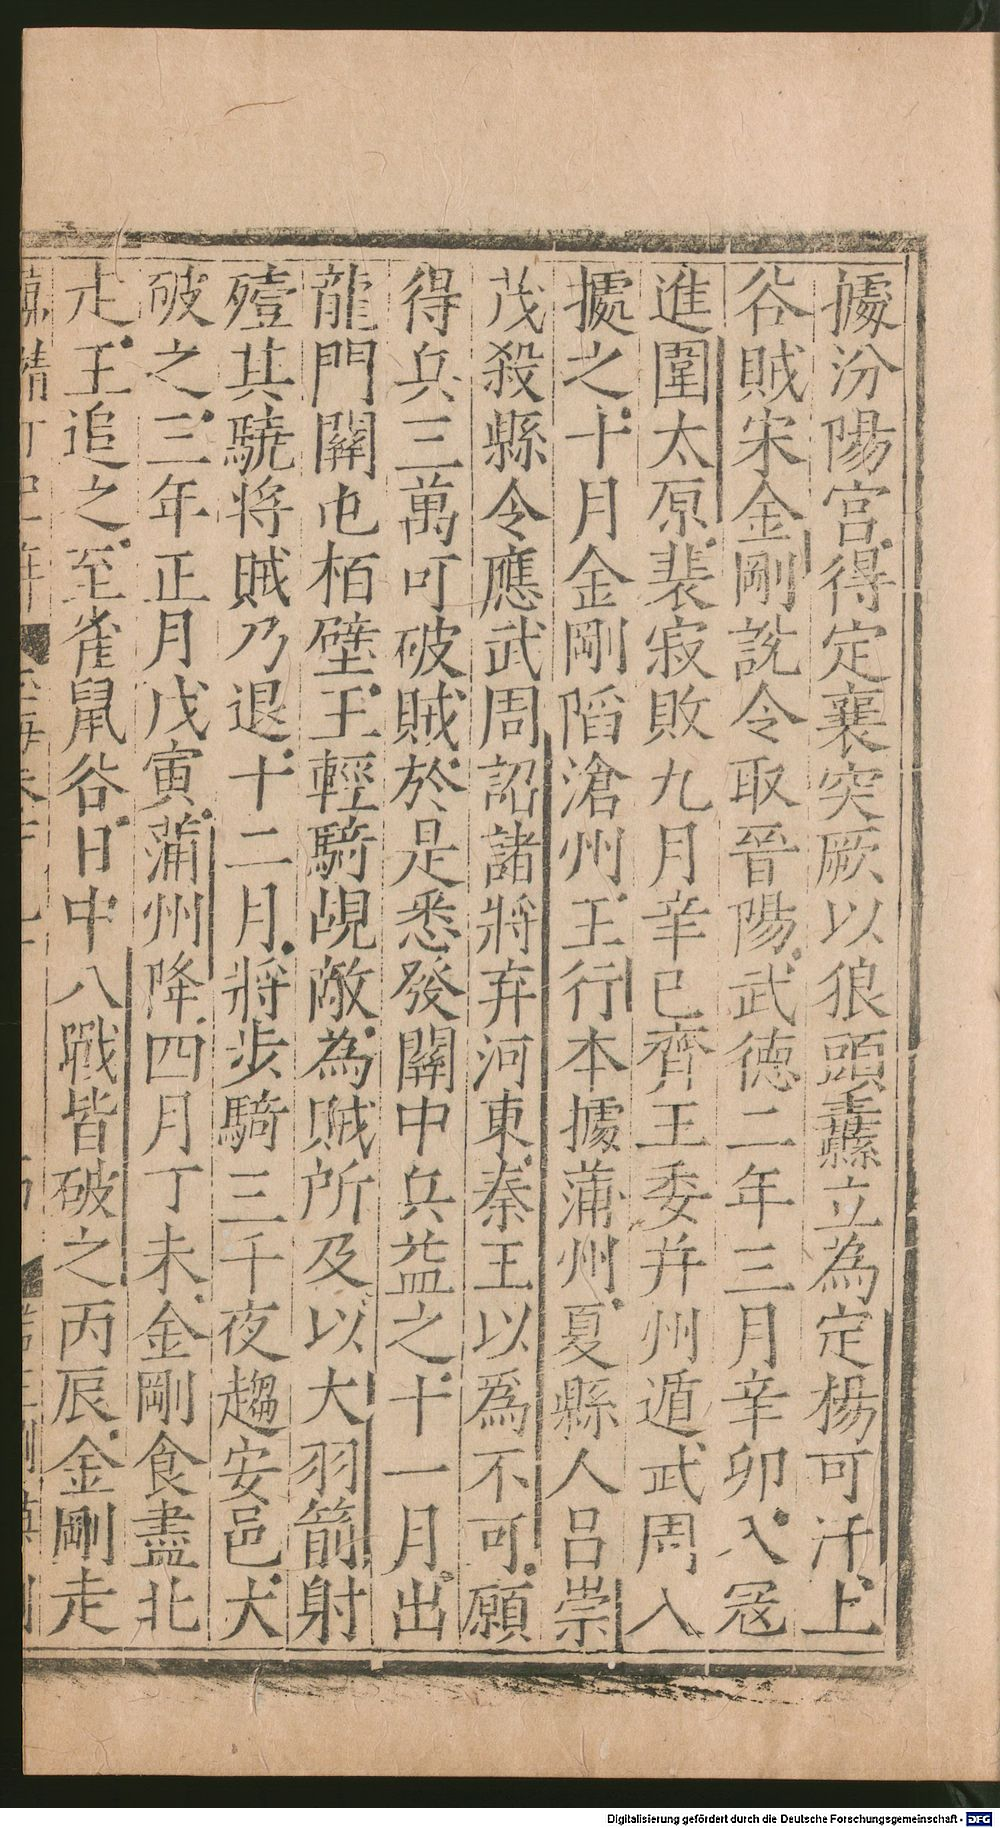 據汾陽宮得定襄突厥以狼頭纛立為定楊可汗上
谷賊宋金剛說令取晉陽武德二年三月辛卯入冦
進圍太原裴寂敗九月辛巳齊王委并州遁武周入
據之十月金剛陷滄州王行本據蒲州夏縣人呂崇
茂殺縣令應武周詔諸將弃河東秦王以為不可願
得兵三萬可破賊於是悉發關中兵益之十一月出
龍門關屯栢壁王輕騎覘敵為賊所及以大羽箭射
殪其驍将賊乃退十二月將步騎三千夜趨安邑大
破之三年正月戊寅蒲州降四月丁未金剛食盡北
走王追之至雀鼠谷日中八戰皆破之丙辰金剛走
Digitalisierung gefördert durch die Deutsche Forschungsgemeinschaft - DFG